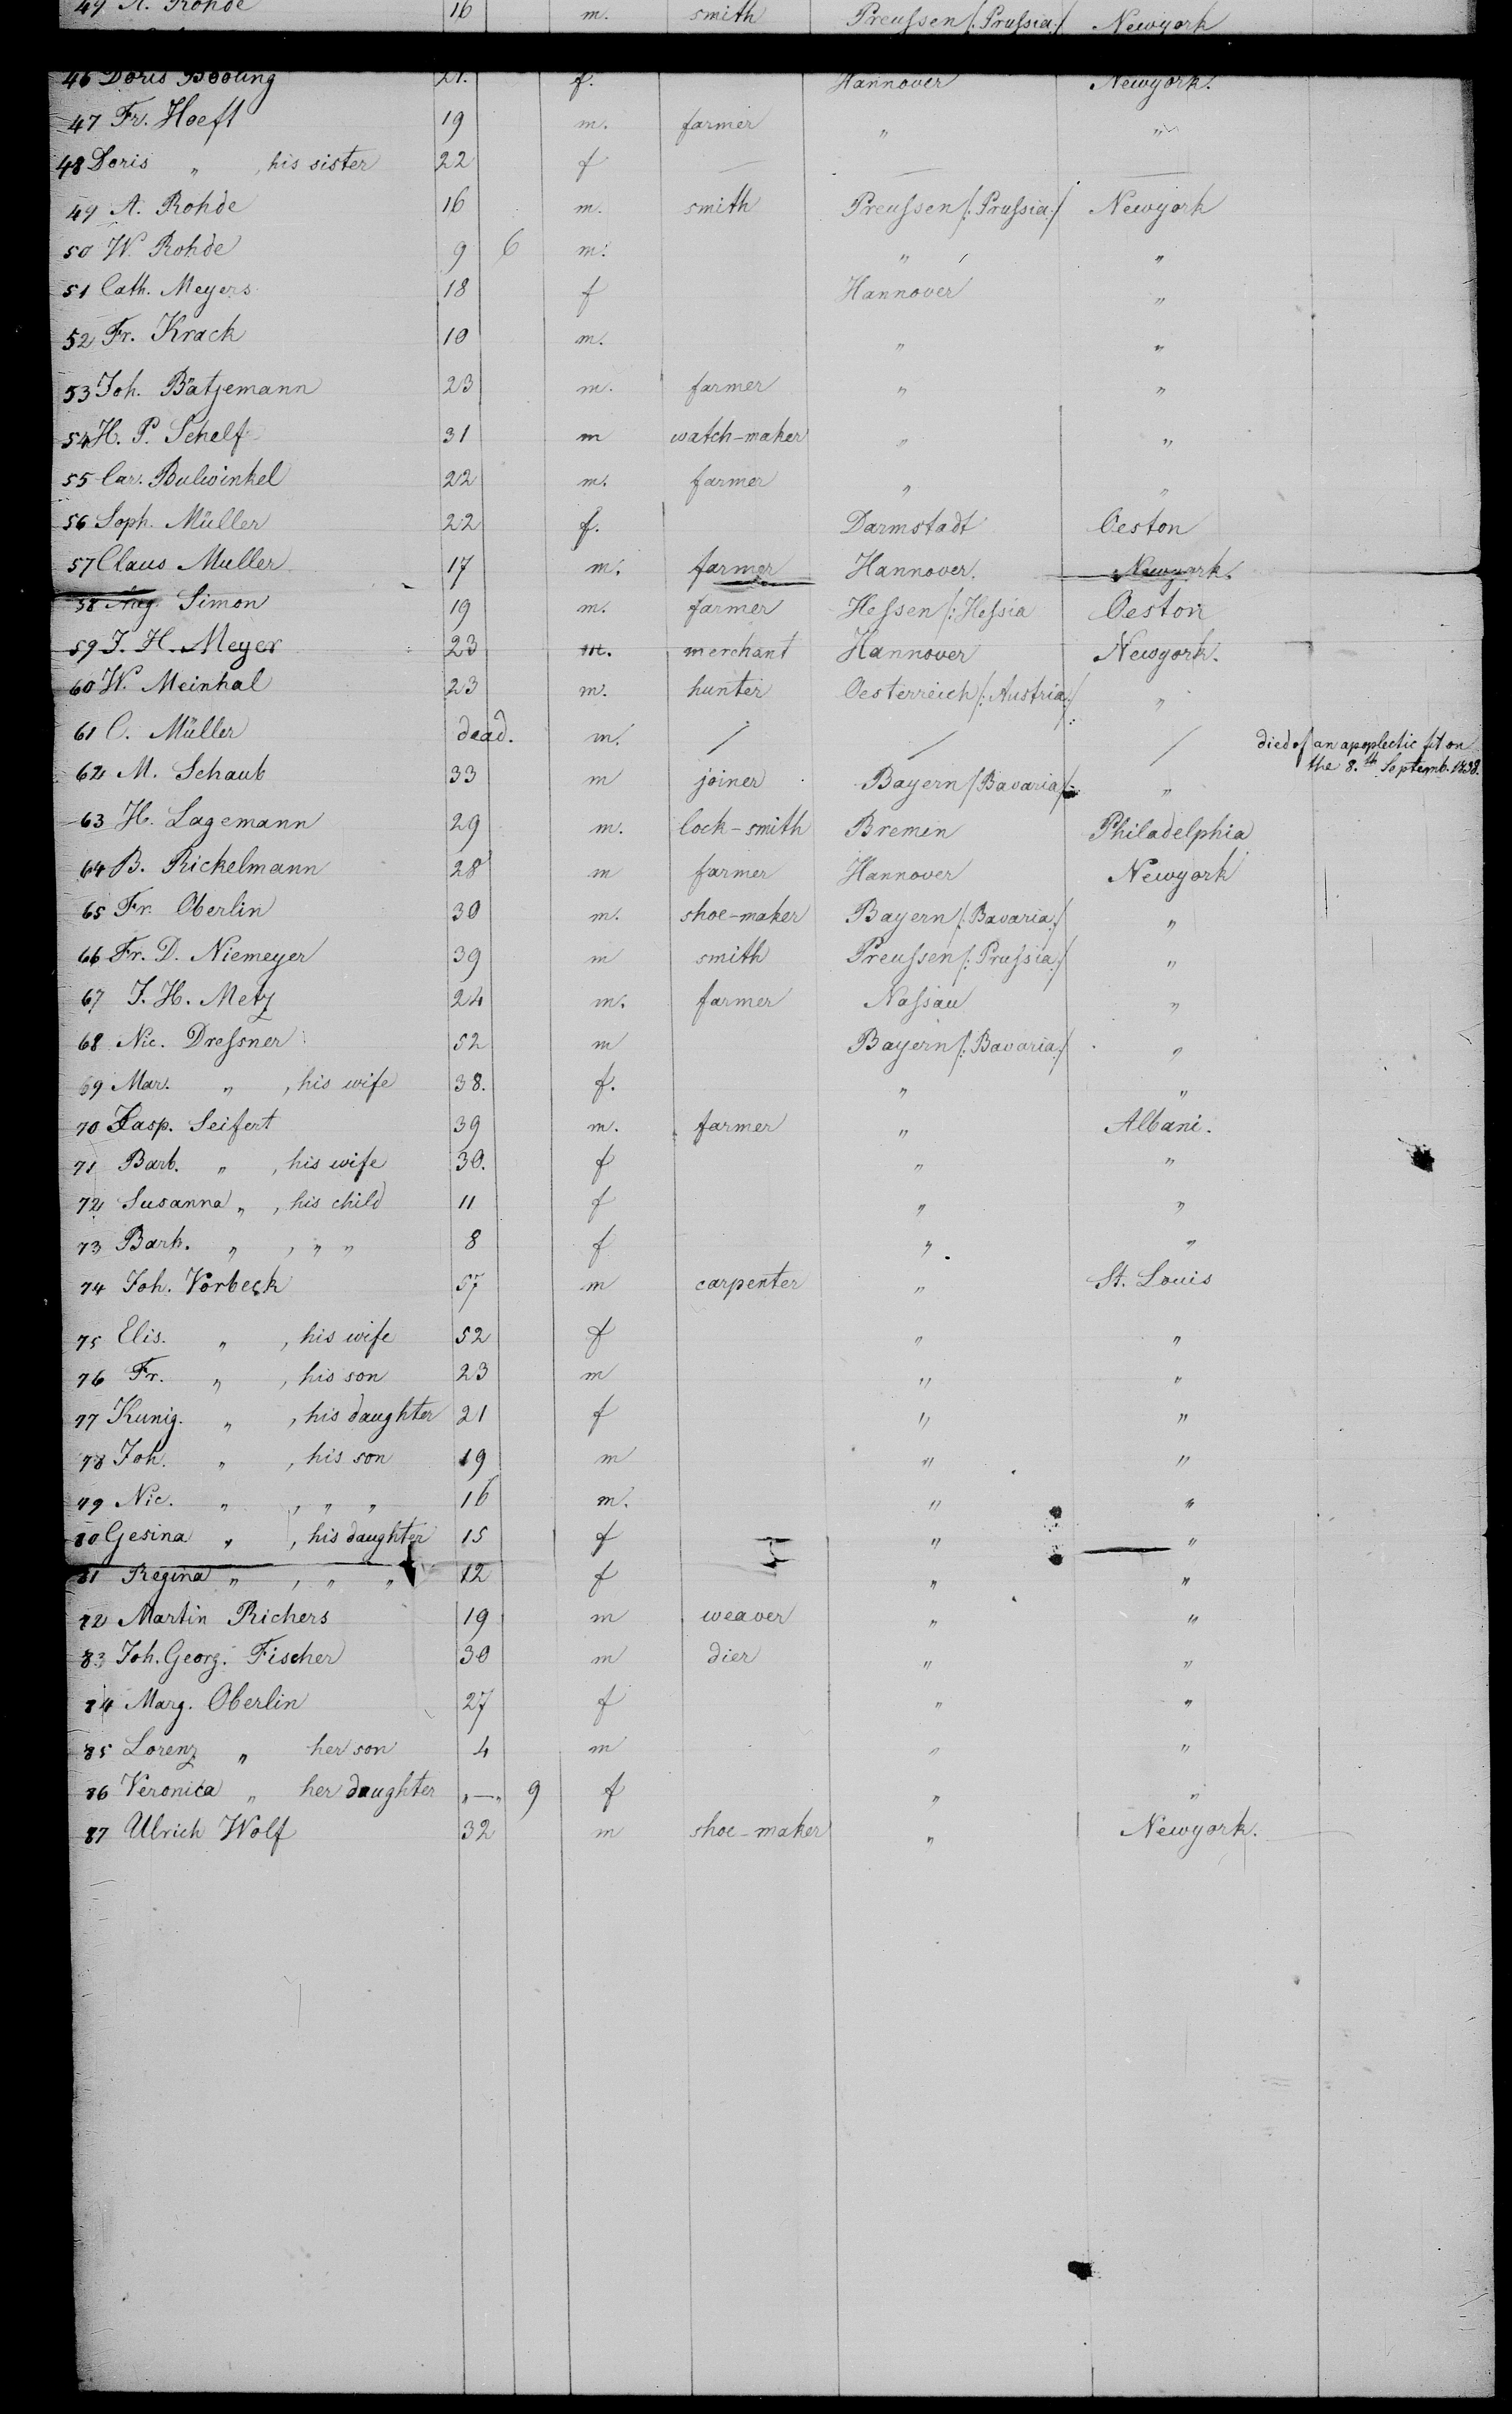 49 A. Rohde 16 m. smith Preussen /: Prussia :/ Newyork
46 Doris 21. f. Hannover Newyork.
47 Fr. Hoeft 19 m. farmer " "
48 Doris " , his sister 22 f — — —
49 A. Rohde 16 m. smith Preussen /: Prussia :/ Newyork
50 W. Rohde 9 6 m. " "
51 Cath. Meyers 18 f Hannover "
52 Fr. Krack 10 m. " "
53 Joh. Bätjemann 23 m. farmer " "
54 H. P. Schelf 31 m watch-maker " "
55 Car. Bulwinkel 22 m. farmer " "
56 Soph. Müller 22 f. Darmstadt Oeston
57 Claus Muller 17 m. farmer Hannover. Newyork.
58 Aug. Simon 19 m. farmer Hessen /: Hessia Oeston
59 J. H. Meyer 23 m. merchant Hannover Newyork.
60 W. Meinhal 23 m. hunter Oesterreich /: Austria :/ "
61 C. Müller dead. m. / / / died of an apoplectic fit on
the 8.th Septemb. 1838.
62 M. Schaub 33 m joiner Bayern /: Bavaria :/ "
63 H. Lagemann 29 m. lock-smith Bremen Philadelphia
64 B. Rickelmann 28 m farmer Hannover Newyork
65 Fr. Oberlin 30 m. shoe-maker Bayern /: Bavaria :/ "
66 Fr. D. Niemeyer 39 m smith Preussen /: Prussia :/ "
67 J. H. Metz 24 m. farmer Nassau "
68 Nic. Dressner 52 m Bayern /: Bavaria :/ "
69 Mar. " , his wife 38. f. " "
70 Kasp. Seifert 39 m. farmer " Albani.
71 Barb. " , his wife 30. f " "
72 Susanna " , his child 11 f " "
73 Barb. " , " " 8 f " "
74 Joh. Vorbeck 57 m carpenter " St. Louis
75 Elis. " , his wife 52 f " "
76 Fr. " , his son 23 m " "
77 Kunig. " , his daughter 21 f " "
78 Joh. " , his son 19 m " "
79 Nic. " , " " 16 m. " "
80 Gesina " , his daughter 15 f " "
81 Regina " , " " 12 f " "
82 Martin Richers 19 m weaver " "
83 Joh. Georg. Fischer 30 m dier " "
84 Marg. Oberlin 27 f " "
85 Lorenz " her son 4 m " "
86 Veronica " her daughter "—" 9 f " "
87 Ulrich Wolf 32 m shoe-maker " Newyork.